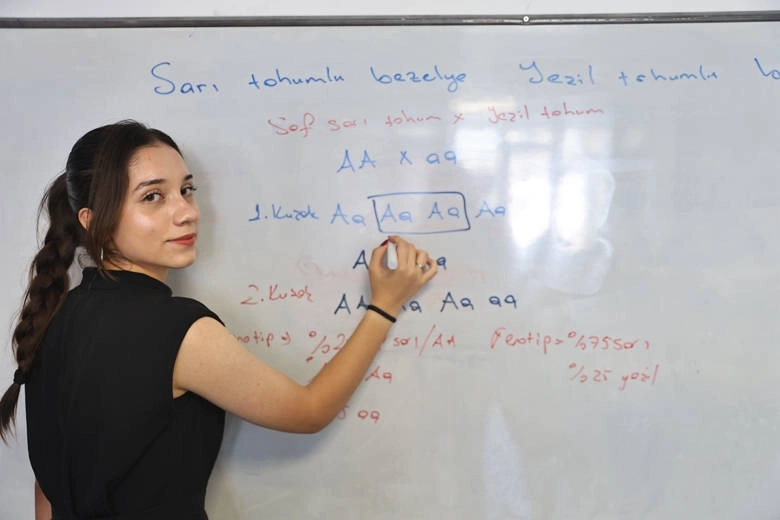 Sarı tohumlu bezelye Yeşil tohumlu
Saf sarı tohum x Yeşil tohum
AA x aa
1. Kuşak Aa Aa Aa Aa
2. Kuşak AA Aa aa
sarı/AA Fenotip > %75 sarı
Aa %25 yeşil
aa